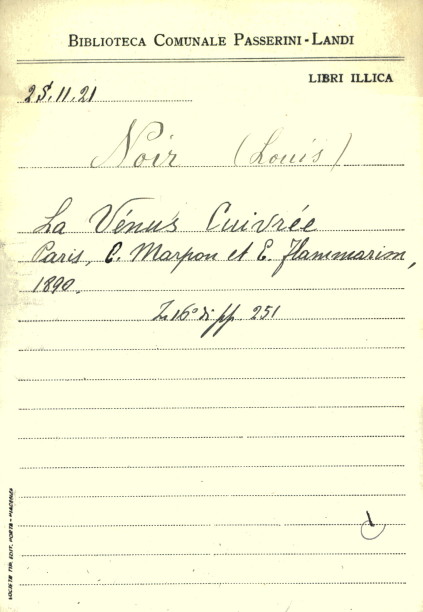 BIBLIOTECA COMUNALE PASSERINI-LANDI
LIBRI ILLICA
25.11.21
Noir (Louis)
La Vénus Cuivrée
Paris, C. Marpon et E. Flammarion,
1890.
In 16° di pp 251
SOCIETÀ TIP. EDIT. PORTA - PIACENZA